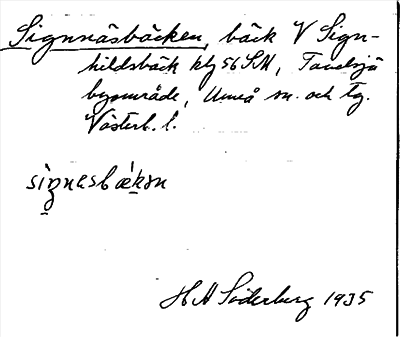 Signnäsbäcken, bäck V Sign-
hildsbäck kbl 56 SM, Tavelsjö
byområde, Umeå sn. och tg.
Västerb. l.
sìgnesbækən
H H Söderberg 1935